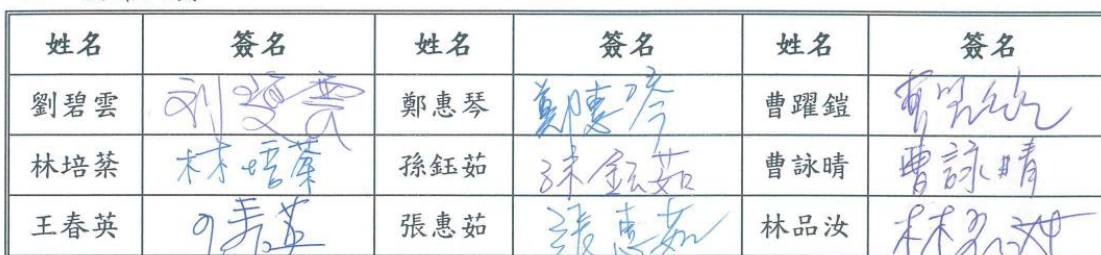 姓名 簽名 姓名 簽名 姓名 簽名
劉碧雲 刘碧雲 鄭惠琴 鄭惠琴 曹躍鎧
林培棻 林培棻 孫鈺茹 孫鈺茹 曹詠晴 曹詠晴
王春英 王春英 張惠茹 張惠茹 林品汝 林品汝